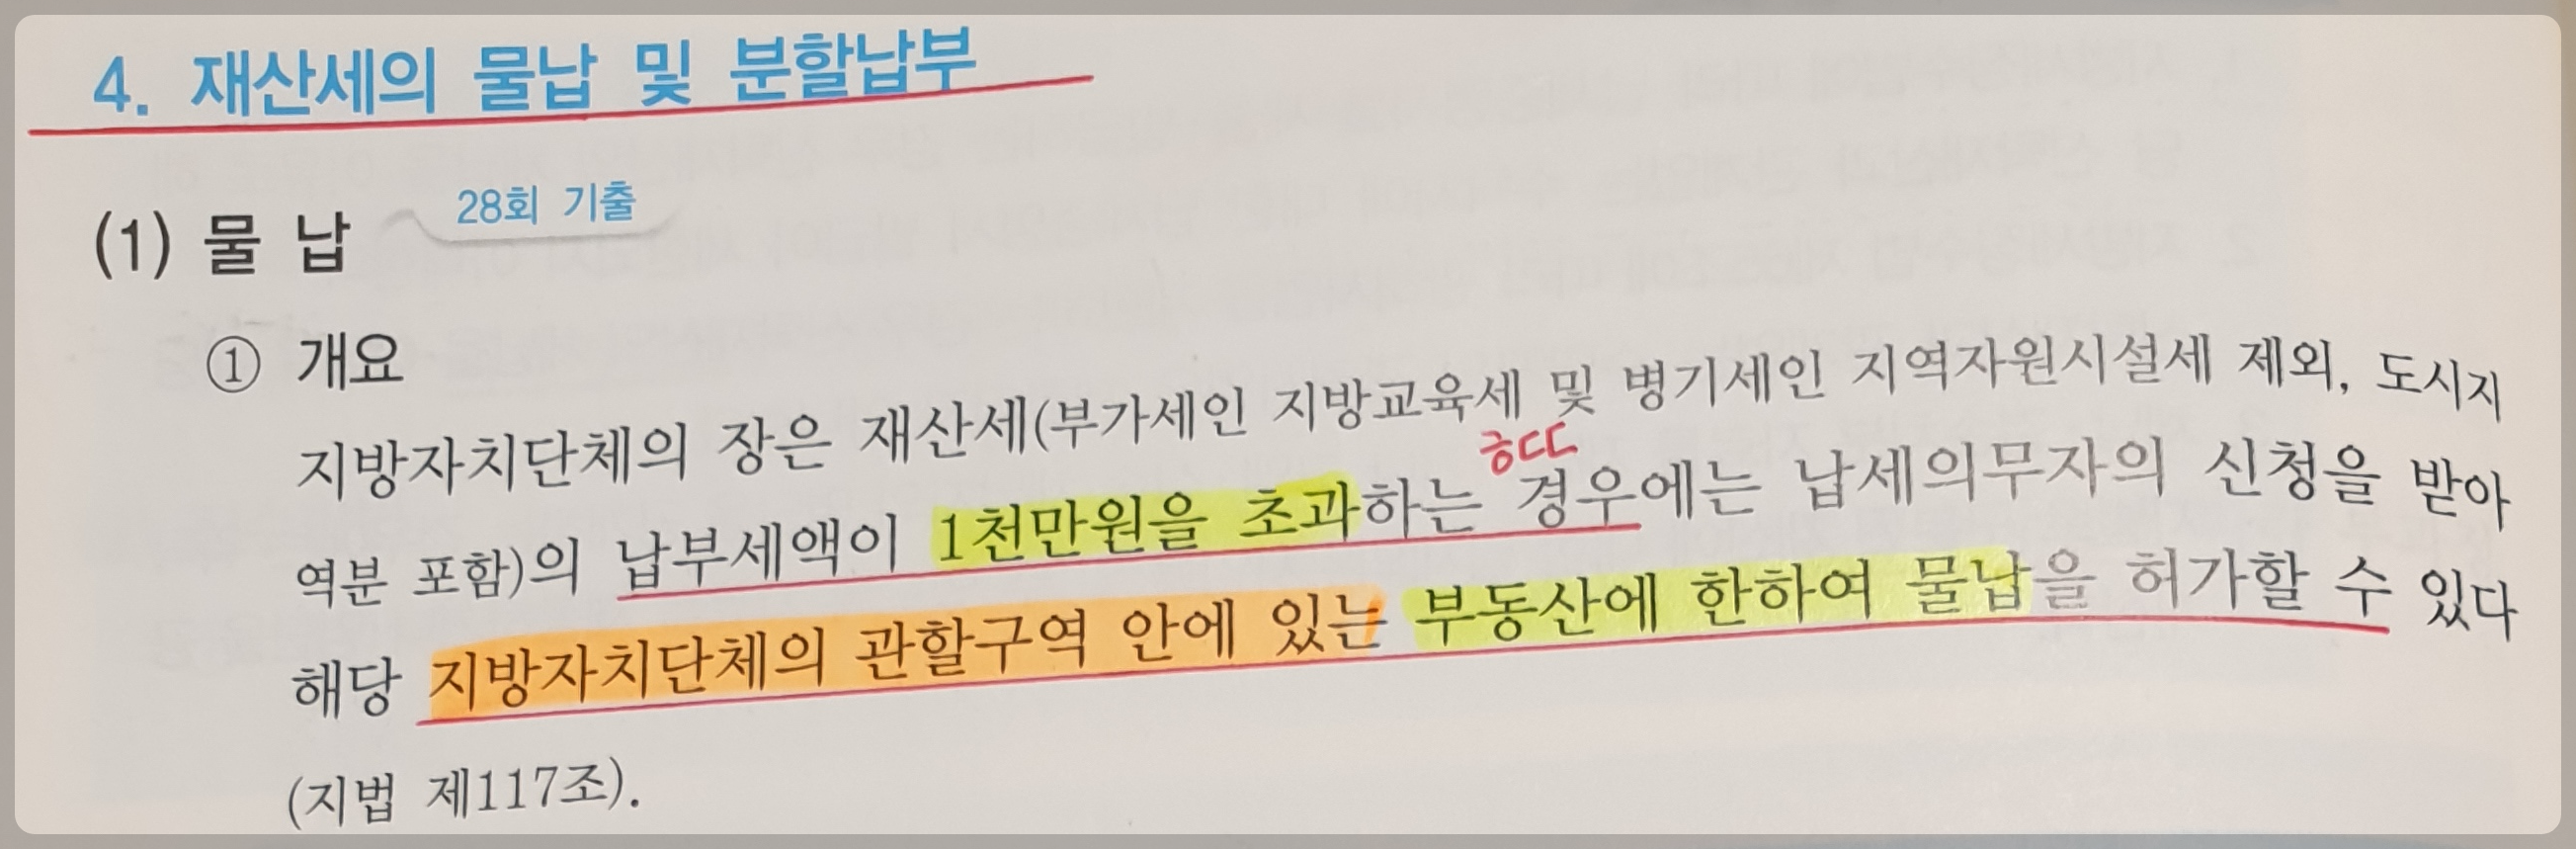 4. 재산세의 물납 및 분할납부
(1) 물 납 28회 기출
① 개요
지방자치단체의 장은 재산세(부가세인 지방교육세 및 병기세인 지역자원시설세 제외, 도시지
ㅎㄷㄷ
역분 포함)의 납부세액이 1천만원을 초과하는 경우에는 납세의무자의 신청을 받아
해당 지방자치단체의 관할구역 안에 있는 부동산에 한하여 물납을 허가할 수 있다
(지법 제117조).